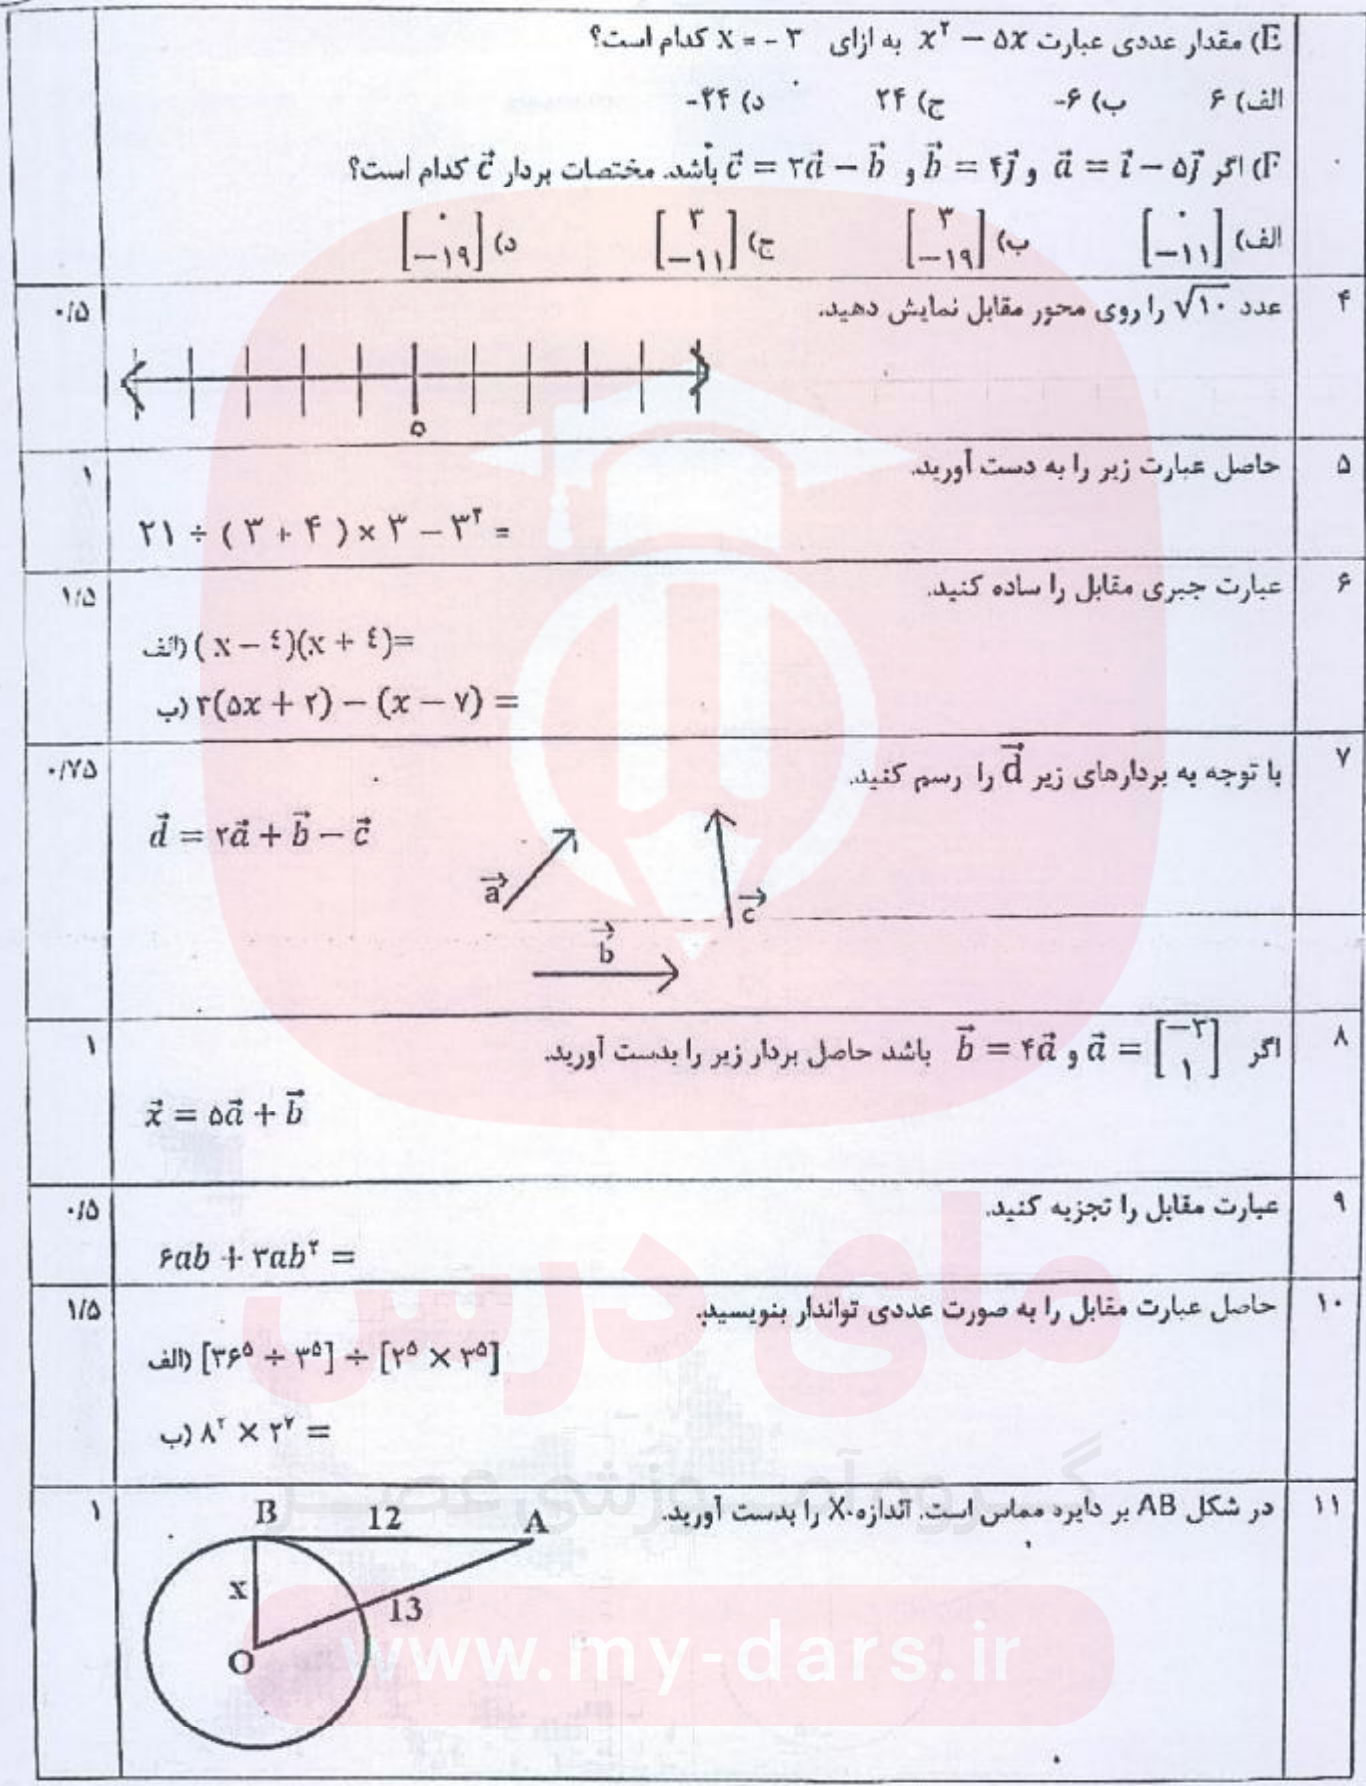 E) مقدار عددی عبارت x² − ۵x به ازای x = - ۳ کدام است؟
الف) ۶ ب) ۶- ج) ۲۴ د) ۲۴-
F) اگر a⃗ = i⃗ − ۵j⃗ و b⃗ = ۴j⃗ و c⃗ = ۳a⃗ − b⃗ باشد. مختصات بردار c⃗ کدام است؟
الف) [۰ / −۱۱] ب) [۳ / −۱۹] ج) [۳ / −۱۱] د) [۰ / −۱۹]
۴ عدد √۱۰ را روی محور مقابل نمایش دهید. ۰/۵
۰
۵ حاصل عبارت زیر را به دست آورید. ۱
۲۱ ÷ ( ۳ + ۴ ) × ۳ − ۳² =
۶ عبارت جبری مقابل را ساده کنید. ۱/۵
الف) ( x − ٤)(x + ٤)=
ب) ۳(۵x + ۲) − (x − ۷) =
۷ با توجه به بردارهای زیر d⃗ را رسم کنید. ۰/۷۵
d⃗ = ۲a⃗ + b⃗ − c⃗
a⃗ c⃗
b⃗
۸ اگر a⃗ = [−۳ / ۱] و b⃗ = ۴a⃗ باشد حاصل بردار زیر را بدست آورید. ۱
x⃗ = ۵a⃗ + b⃗
۹ عبارت مقابل را تجزیه کنید. ۰/۵
۶ab + ۳ab² =
مای درس
۱۰ حاصل عبارت مقابل را به صورت عددی تواندار بنویسید. ۱/۵
الف) [۳۶⁵ ÷ ۳⁵] ÷ [۲⁵ × ۳⁵]
ب) ۸² × ۲⁷ =
گروه آموزشی عصر
۱۱ در شکل AB بر دایره مماس است. اندازه X را بدست آورید. ۱
B 12 A
x
13
O
www.my-dars.ir